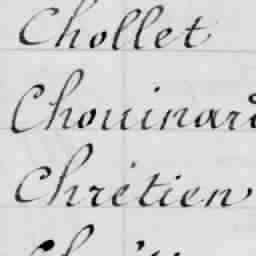 Chollet
Chouinard
Chrétien